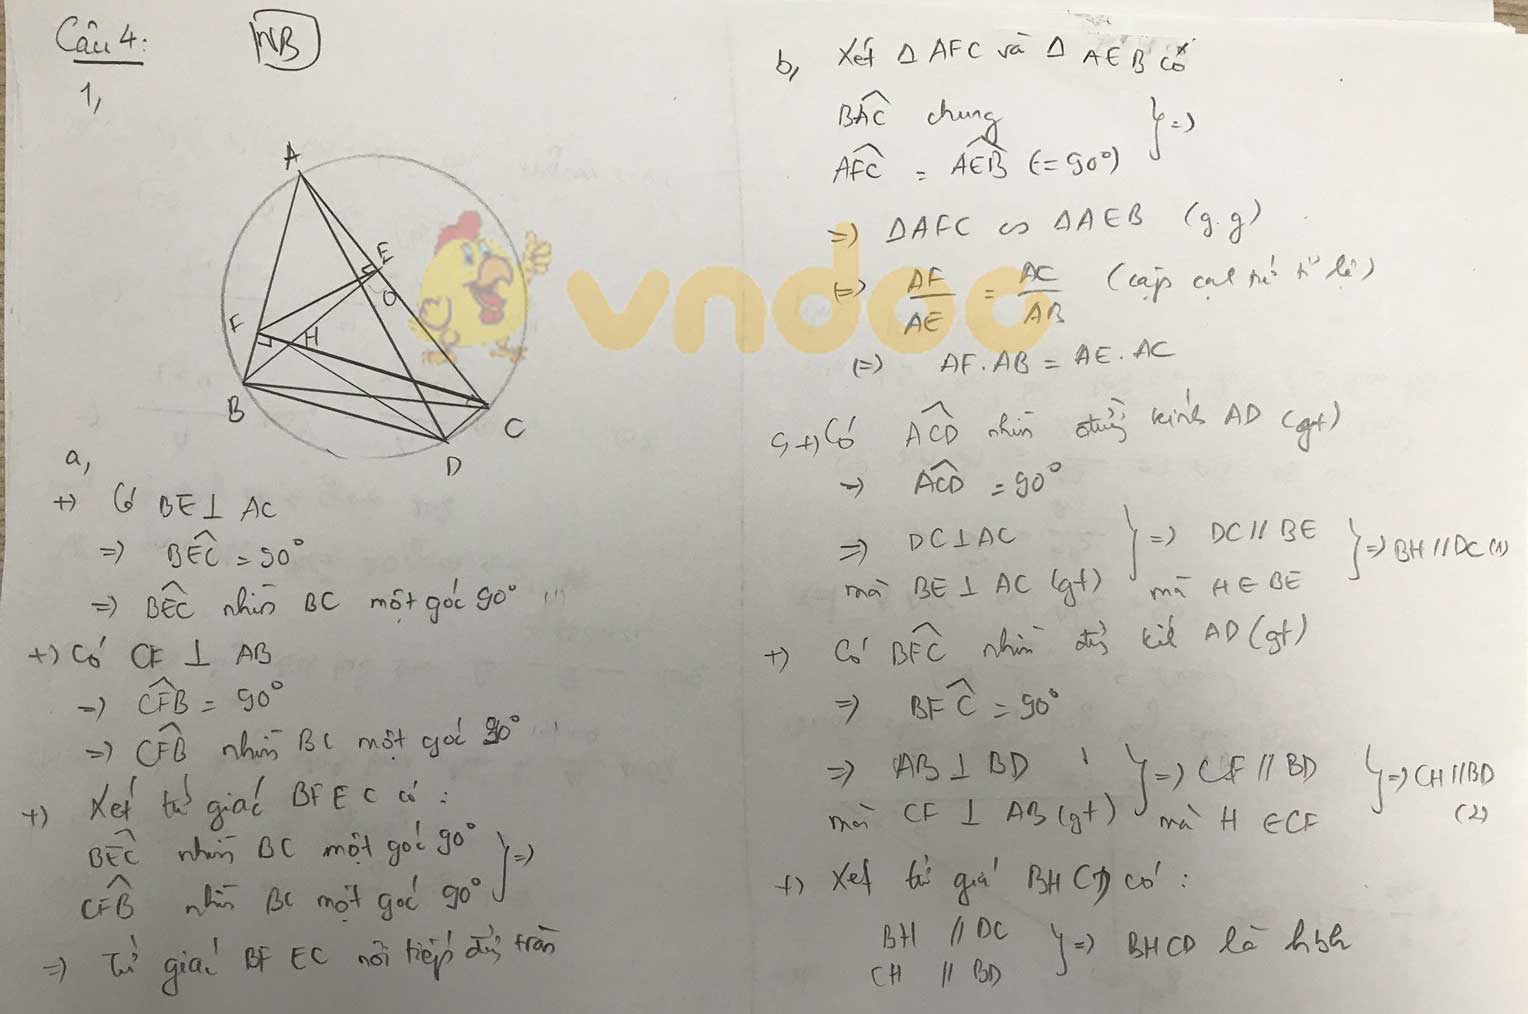 Câu 4:
NB
1,
A
E
O
F
H
B
C
D
a,
+) Có BE ⊥ AC
=> BEC = 90°
=> BEC nhìn BC một góc 90°
+) Có CF ⊥ AB
=> CFB = 90°
=> CFB nhìn BC một góc 90°
+) Xét tứ giác BFEC có:
BEC nhìn BC một góc 90°
CFB nhìn BC một góc 90° } =>
=> Tứ giác BFEC nội tiếp đường tròn
b, Xét Δ AFC và Δ AEB có
BAC chung
AFC = AEB (= 90°) } =>
=> ΔAFC ∽ ΔAEB (g.g)
(=> AF/AE = AC/AB (cặp cạnh t/ứ tỉ lệ)
(=> AF.AB = AE.AC
c, +) Có ACD nhìn đường kính AD (gt)
=> ACD = 90°
=> DC ⊥ AC
mà BE ⊥ AC (gt) } => DC // BE
mà H ∈ BE } => BH // DC (1)
+) Có BFC nhìn đường kính AD (gt)
=> BFC = 90°
=> AB ⊥ BD
mà CF ⊥ AB (gt) } => CF // BD
mà H ∈ CF } => CH // BD
(2)
+) Xét tứ giác BHCD có:
BH // DC
CH // BD } => BHCD là hbh
vndoo